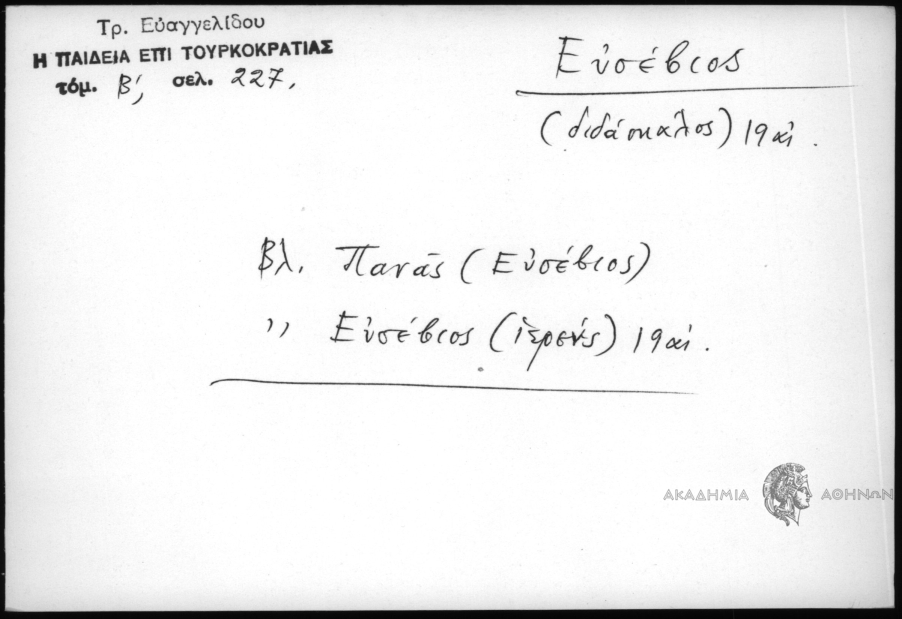 Τρ. Εὐαγγελίδου
Η ΠΑΙΔΕΙΑ ΕΠΙ ΤΟΥΡΚΟΚΡΑΤΙΑΣ
τόμ. Β′, σελ. 227.
Εὐσέβιος
(διδάσκαλος) 19 αἰ.
Βλ. Πανᾶς (Εὐσέβιος)
,, Εὐσέβιος (ἱερεύς) 19 αἰ.
ΑΚΑΔΗΜΙΑ ΑΘΗΝΩΝ